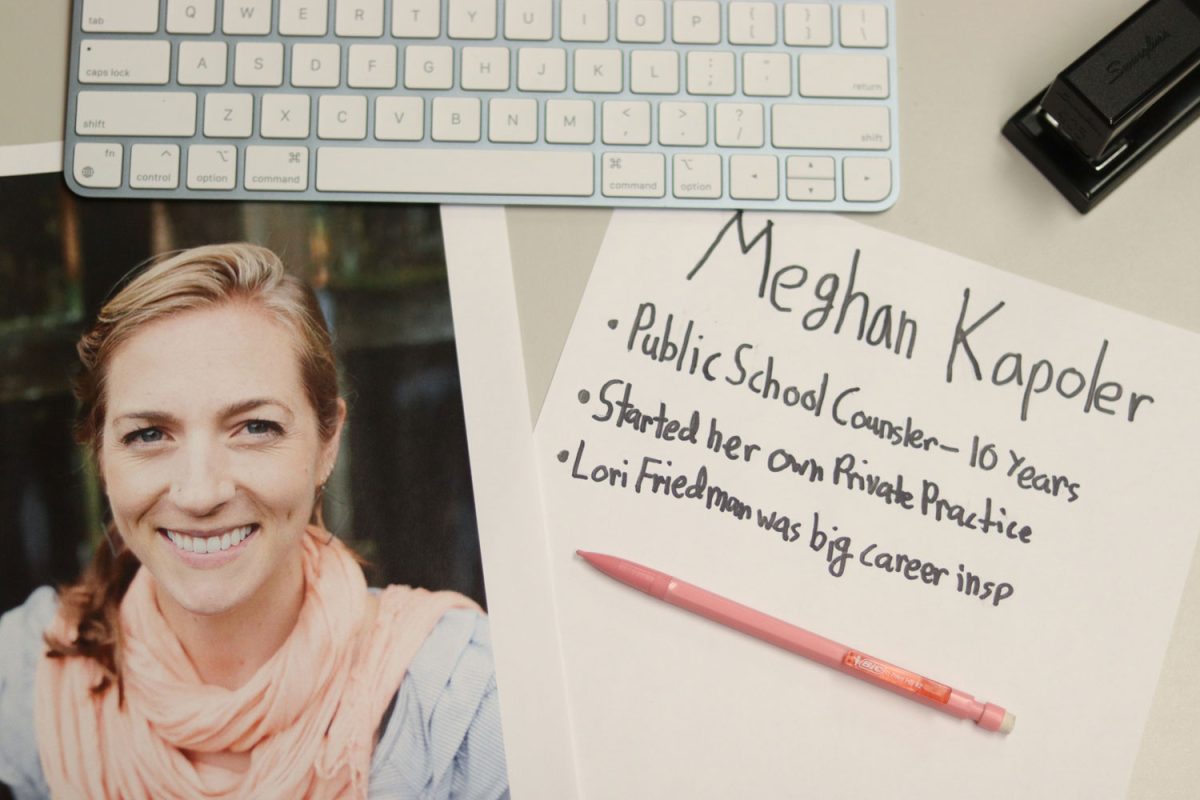 tab Q W E R T Y U I O P { [ } ] | \
caps lock A S D F G H J K L : ; " ' return
shift Z X C V B N M < , > . ? / shift
fn control option command command option
Swingline
Meghan Kapoler
• Public School Counsler – 10 Years
• Started her own Private Practice
• Lori Friedman was big career insp
BIC